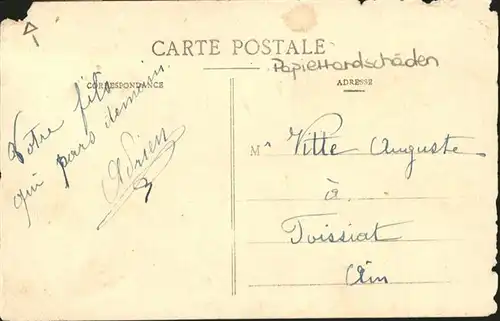 CARTE POSTALE
Papierrandschäden
CORRESPONDANCE
ADRESSE
Votre fils
qui pars demain.
Adrien
Mr Vitte Auguste
à
Toissiat
Ain